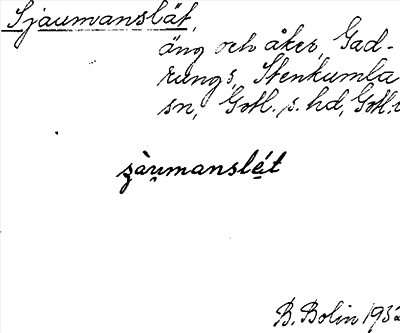 Sjaumanslät,
äng och åker, Gad-
rungs, Stenkumla
sn, Gotl. s. hd, Gotl.
B. Bolin 1932